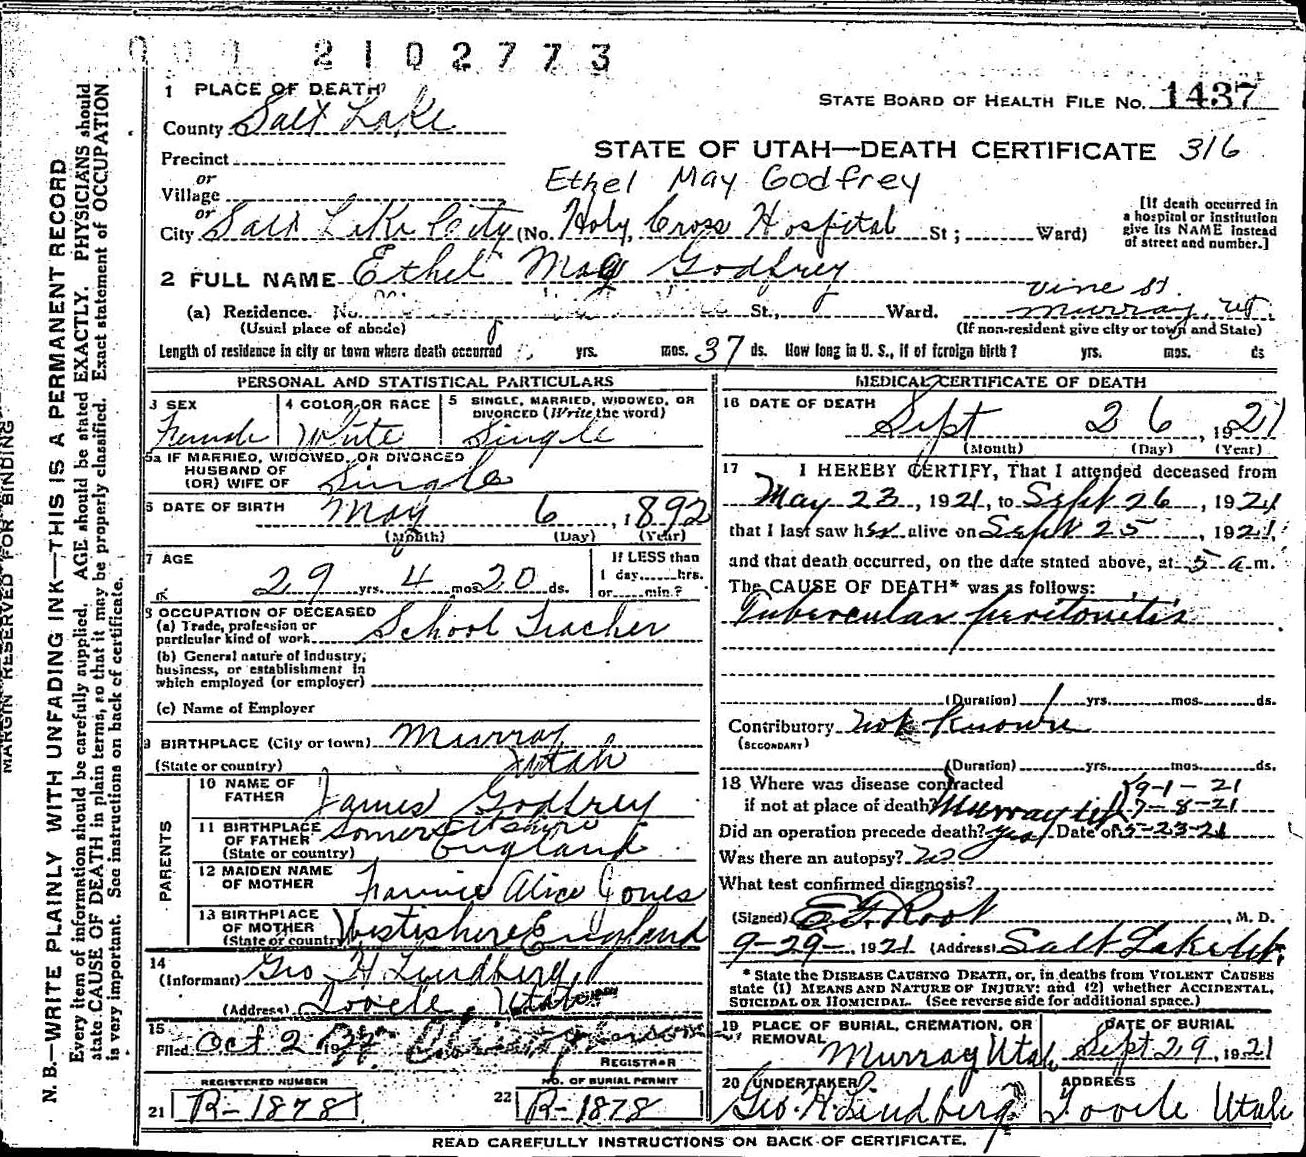 2102773
1 PLACE OF DEATH
STATE BOARD OF HEALTH FILE No. 1437
County Salt Lake
STATE OF UTAH—DEATH CERTIFICATE 316
Precinct
or
Ethel May Godfrey
Village
or
City Salt Lake City (No. Holy Cross Hospital St; Ward)
[If death occurred in
a hospital or institution
give its NAME instead
of street and number.]
2 FULL NAME Ethel May Godfrey
(a) Residence. No. St., Ward. Vine St. Murray, Ut.
(Usual place of abode) (If non-resident give city or town and State)
Length of residence in city or town where death occurred yrs. mos. 37 ds. How long in U. S., if of foreign birth? yrs. mos. ds
PERSONAL AND STATISTICAL PARTICULARS
3 SEX
Female
4 COLOR OR RACE
White
5 SINGLE, MARRIED, WIDOWED, OR
DIVORCED (Write the word)
Single
5a IF MARRIED, WIDOWED, OR DIVORCED
HUSBAND OF
(OR) WIFE OF Single
6 DATE OF BIRTH May 6, 1892
(Month) (Day) (Year)
7 AGE
29 yrs. 4 mos 20 ds.
If LESS than
1 day......hrs.
or......min.?
8 OCCUPATION OF DECEASED
(a) Trade, profession or
particular kind of work School Teacher
(b) General nature of industry,
business, or establishment in
which employed (or employer)
(c) Name of Employer
9 BIRTHPLACE (City or town) Murray
(State or country) Utah
PARENTS
10 NAME OF
FATHER James Godfrey
11 BIRTHPLACE
OF FATHER
(State or country) Somersetshire
England
12 MAIDEN NAME
OF MOTHER Fannie Alice Jones
13 BIRTHPLACE
OF MOTHER
(State or country) England
14
(Informant) Geo H Lindberg
(Address) Tooele, Utah
15
Filed Oct 2
REGISTRAR
REGISTERED NUMBER
21 R-1878
NO. OF BURIAL PERMIT
22 R-1878
MEDICAL CERTIFICATE OF DEATH
16 DATE OF DEATH
Sept 26, 1921
(Month) (Day) (Year)
17 I HEREBY CERTIFY, That I attended deceased from
May 23, 1921, to Sept 26, 1921
that I last saw her alive on Sept 25, 1921,
and that death occurred, on the date stated above, at 5 a.m.
The CAUSE OF DEATH* was as follows:
Tubercular peritonitis
(Duration) 1 yrs. mos. ds.
Contributory not known
(SECONDARY)
(Duration) yrs. mos. ds.
18 Where was disease contracted
if not at place of death? Murray Ut
9-1-21
7-8-21
Did an operation precede death? yes Date of 5-23-21
Was there an autopsy? no
What test confirmed diagnosis?
(Signed) E G Root, M. D.
9-29-, 1921 (Address) Salt Lake Ut.
* State the DISEASE CAUSING DEATH, or, in deaths from VIOLENT CAUSES
state (1) MEANS AND NATURE OF INJURY; and (2) whether ACCIDENTAL,
SUICIDAL OR HOMICIDAL. (See reverse side for additional space.)
19 PLACE OF BURIAL, CREMATION, OR
REMOVAL Murray Utah
DATE OF BURIAL
Sept 29, 1921
20 UNDERTAKER
Geo. H. Lindberg
ADDRESS
Tooele Utah
READ CAREFULLY INSTRUCTIONS ON BACK OF CERTIFICATE.
MARGIN RESERVED FOR BINDING
N. B.—WRITE PLAINLY WITH UNFADING INK—THIS IS A PERMANENT RECORD
Every item of information should be carefully supplied. AGE should be stated EXACTLY. PHYSICIANS should
state CAUSE OF DEATH in plain terms, so that it may be properly classified. Exact statement of OCCUPATION
is very important. See instructions on back of certificate.